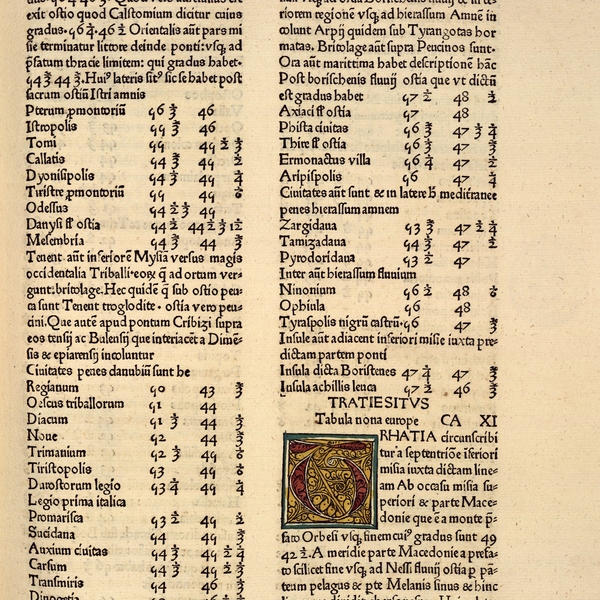 exit ostio quod Calstomium dicitur cuius
gradus. 56 ⅔. 46 ½ Orientalis aūt pars mi
sie terminatur littore deinde ponti: vsq; ad
p̄satum thracie limitem: qui gradus habet.
54 ⅔ 44 ⅔. Huiꝰ lateris sitꝰ sic se habet post
sacrum ostiū Istri amnis
Pterum ꝓmontoriū 56 ⅓ 46
Istropolis 55 ⅔ 46
Tomi 55 45 ½ ⅓
Callatis 54 ⅔ 45 ½
Dyonisipolis 54 ⅓ 45 ¼
Tiristre ꝓmontoriū 55 45 ⅙
Odessus 54 ½ ⅓ 45
Danysi fl̄ ostia 54 ½ 44 ½ ⅓ 1/12
Mesembria 54 ⅔ 44 ⅔
Tenent aūt inferiorē Mysiā versus magis
occidentalia Triballi: eorꝝ q̄ ad ortum ver⸗
gunt: britolage. Hec quidē q̄ sub ostio peu⸗
ca sunt Tenent troglodite. ostia vero peu⸗
cini. Que autē apud pontum Cribizi supra
eos tensij ac Bulensij que interiacēt a Dimē⸗
sis & epiarensij incoluntur
Ciuitates penes danubiū sunt he
Regianum 50 43 ⅔
Oescus triballorum 51 44
Diacum 51 ⅓ 44
Noue 52 44 ⅓
Trimanium 52 ⅓ 45 ⅙
Tiristopolis 53 45 ⅙
Durostorum legio 53 ¼ 45 ¼
Legio prima italica
Promarisca 53 ½ 45 ½
Sucidana 54 45 ⅔
Auxium ciuitas 54 ⅓ 45 ½ ¼
Carsum 54 ⅓ 45 ½ ⅓
Transmiris 54 46 ⅓
riorem regionē vsq; ad hierassum Amnē in
colunt Arpij quidem sub Tyrangotas hor
matas. Britolage aūt supra Peucinos sunt.
Ora aūt marittima habet descriptionē hāc
Post borischenis fluuij ostia que vt dictū
est gradus habet 57 ½ 48 ½
Axiaci fl̄ ostia 57 48
Phista ciuitas 56 ⅔ 47 ⅓ ¼
Thire fl̄ ostia 56 ⅓ 47 ⅔
Ermonactus villa 56 ¼ 47 ½
Aripispolis 56 47 ¼
Ciuitates aūt sunt & in latere h̄ mediterrance
penes hierassum amnem
Zargidaua 53 ⅔ 47 ½ ¼
Tamizadaua 54 ⅓ 47 ½
Pyrodoridaua 53 ½ 47
Inter aūt hierassum fluuium
Ninonium 56 ½ 48 ⅙
Ophiula 56 48
Tyraspolis nigrū castrū. 56 47 ⅔
Insule aūt adiacent inferiori misie iuxta pre⸗
dictam partem ponti
Insula dicta Boristenes 57 ¼ 47 ⅔
Insula achillis leuca 57 ½ 46 ⅔
TRATIE SITVS
Tabula nona europe CA XI
TRHATIA circunscribi
tur a septentriōe īferiori
misia iuxta dictam line⸗
am Ab occasu misia su⸗
periori & parte Mace⸗
donie que ē a monte p̄⸗
fato Orbesi vsq; finem cuiꝰ gradus sunt 49
42 ½. A meridie parte Macedonie a prefa⸗
to scilicet fine vsq; ad Nessi fluuij ostia p̄ pā⸗
teum pelagus & p̄te Melanis sinus & hinc